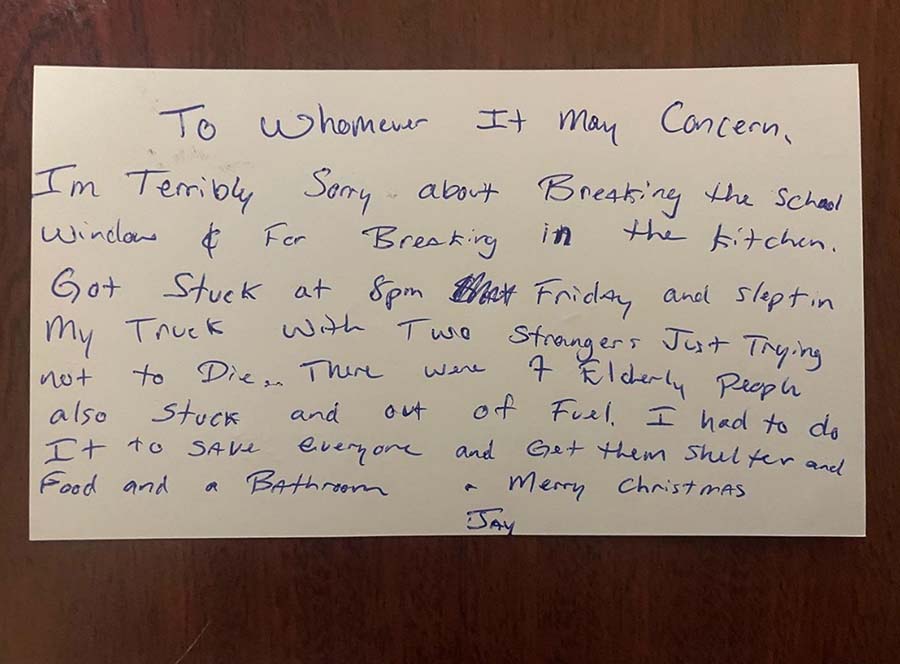 To Whomever It May Concern,
I'm Terribly Sorry about Breaking the School
Window & For Breaking in the Kitchen.
Got Stuck at 8pm Friday and slept in
My Truck with Two Strangers Just Trying
not to Die.. There were 7 Elderly People
also Stuck and out of Fuel. I had to do
It to SAVE everyone and Get them shelter and
Food and a Bathroom. Merry Christmas
Jay